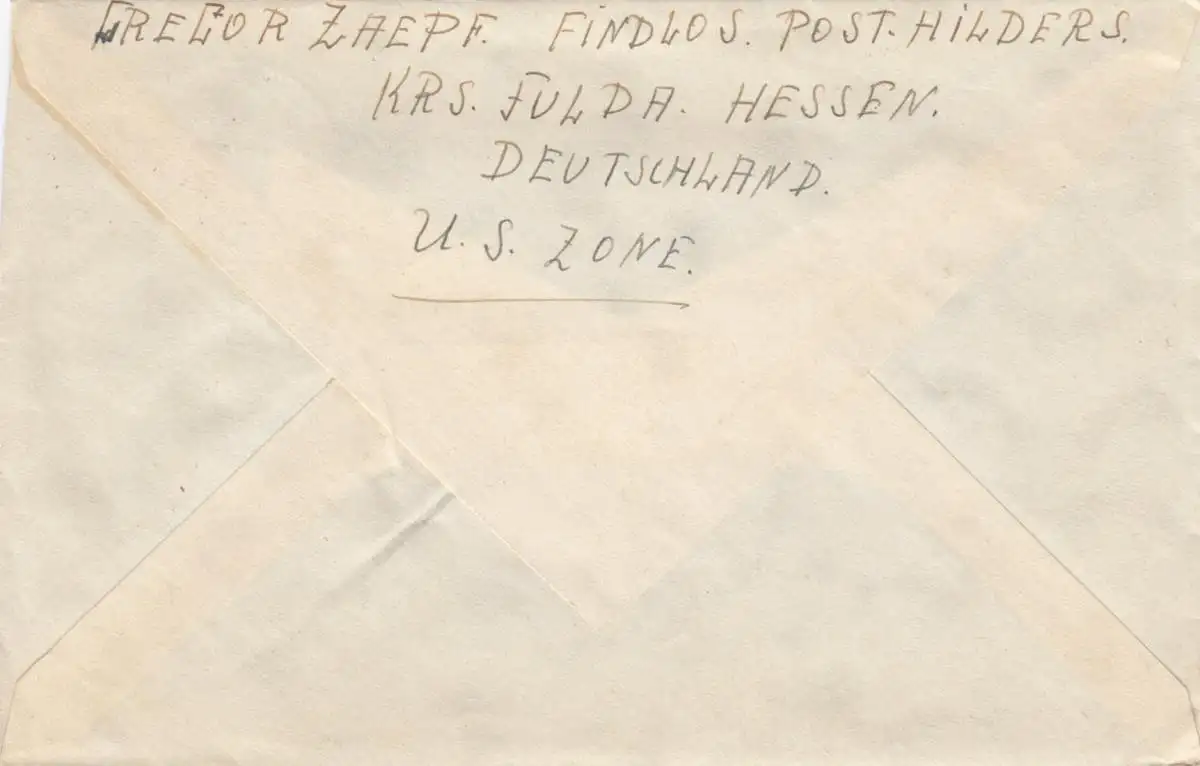 GREGOR ZAEPF. FINDLOS. POST. HILDERS.
KRS. FULDA. HESSEN.
DEUTSCHLAND.
U. S. ZONE.